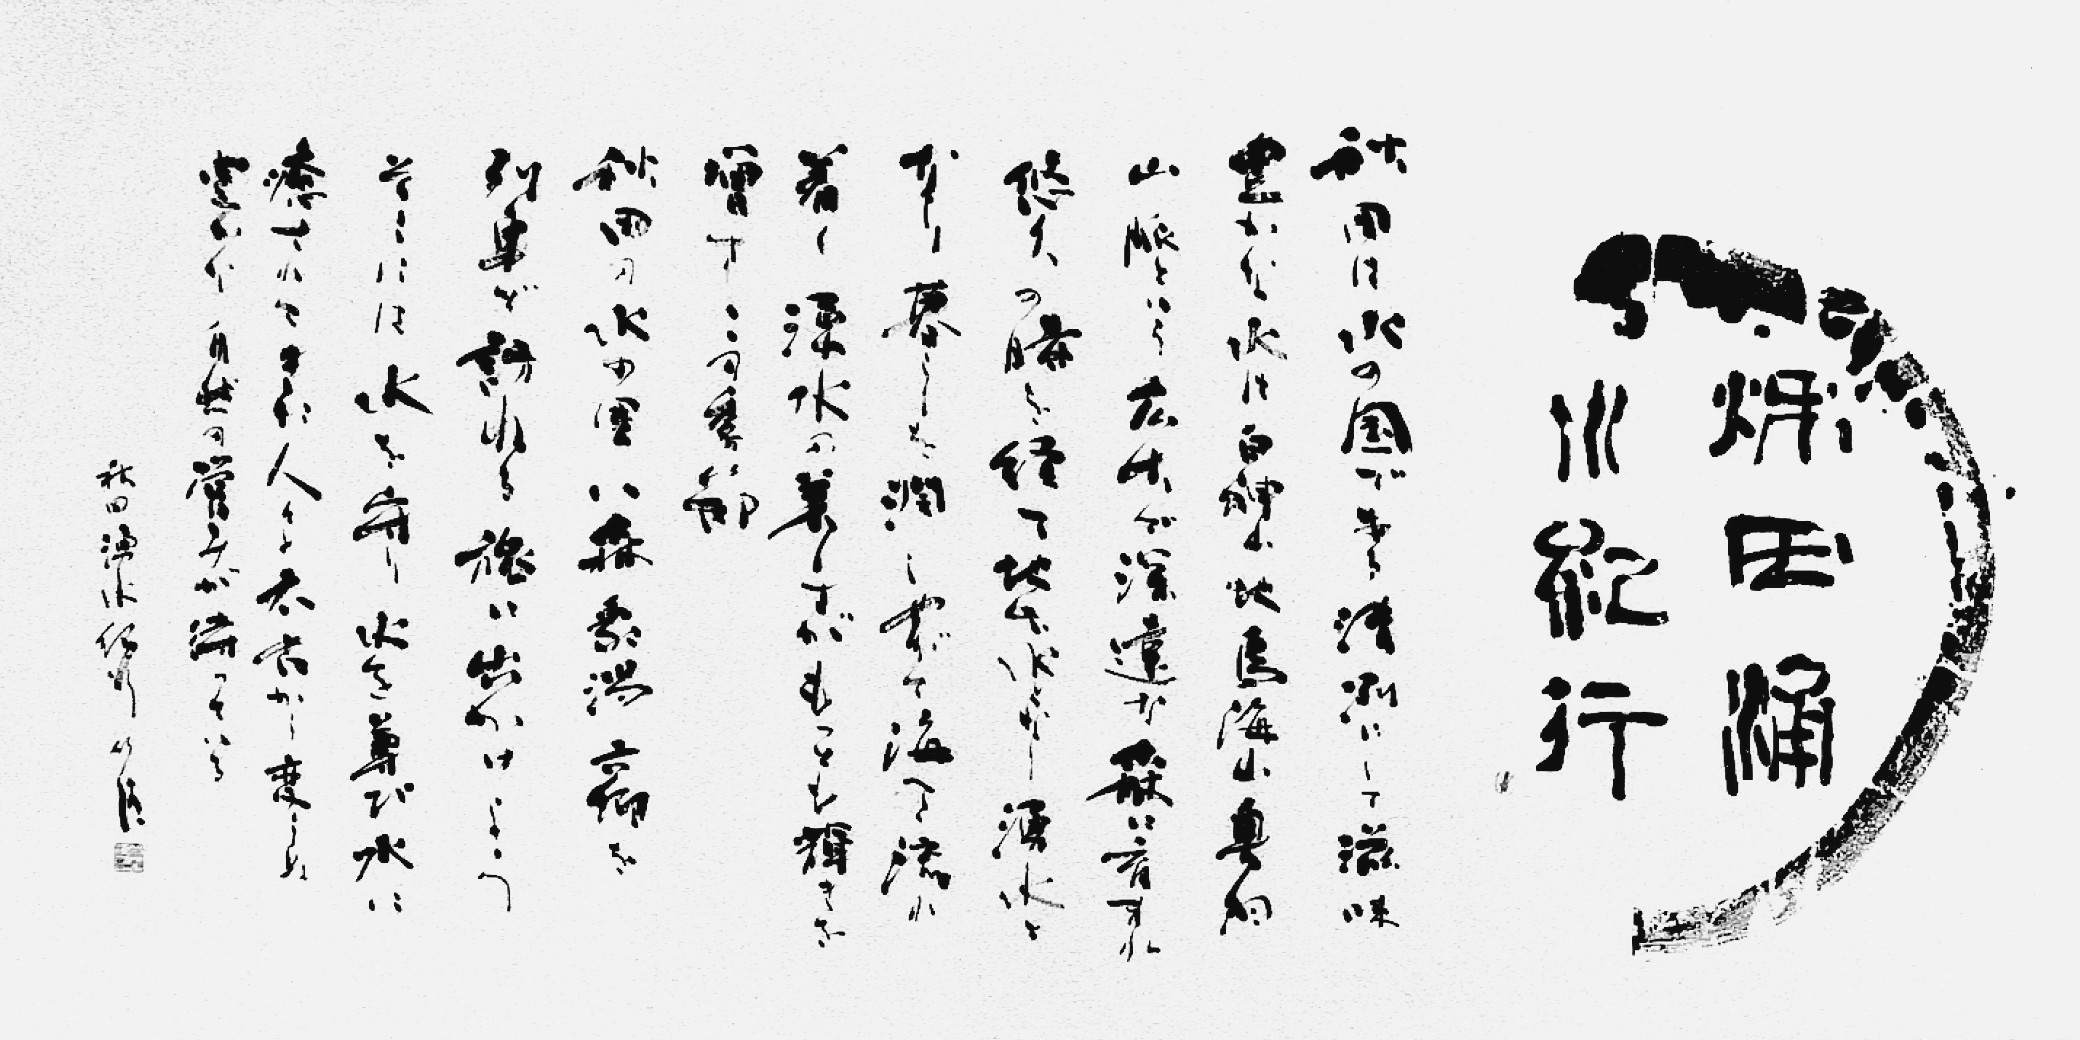 秋田湧
水紀行
秋田は水の国である清冽にして滋味
豊かな水は白神山地鳥海山奥羽
山脈という広大で深遠な森に育まれ
悠久の時を経て地下水となり湧水と
なり暮らしを潤しやがて海へ流れ
着く湧水の美しさがもっとも輝きを
増すこの季節
秋田の水の里い森泉湯六郷を
列車で訪れる旅に出かけよう
そこには水を守り水を尊び水に
癒されてきた人と太古から変らぬ
豊かな自然の営みが満ちている
秋田湧水紀行